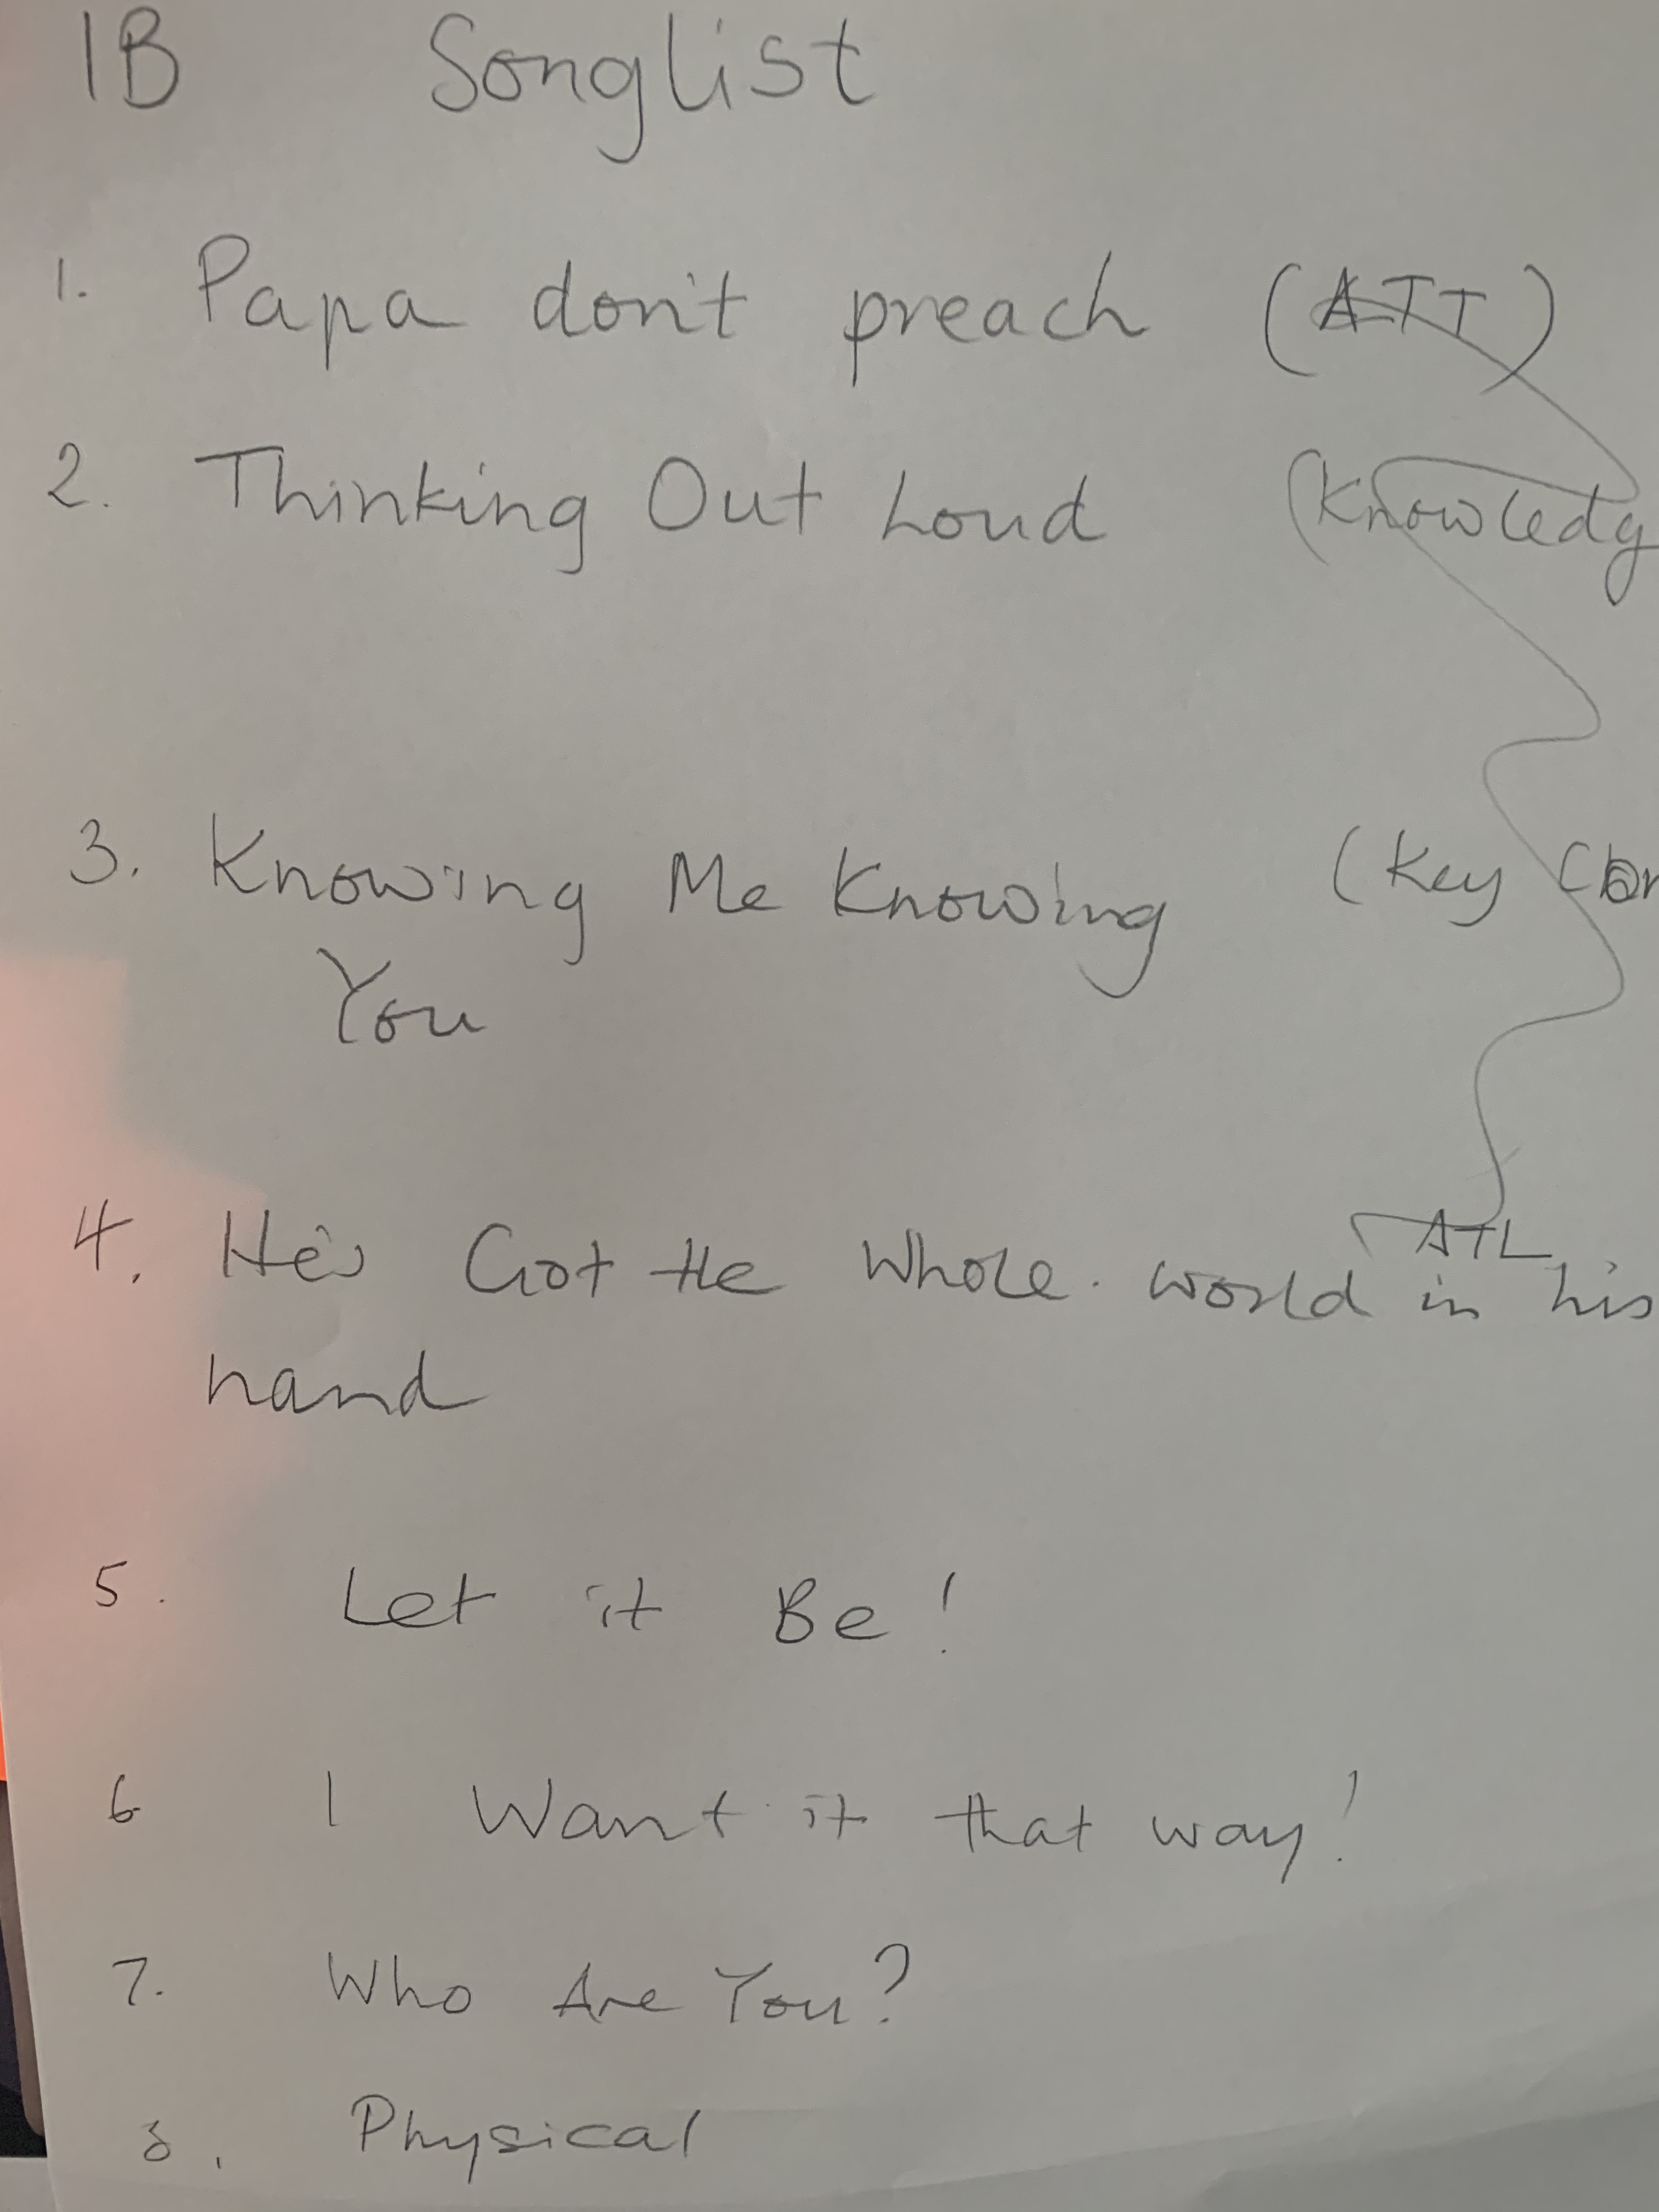 1B Songlist
1. Papa don't preach (ATT)
2. Thinking Out Loud (Knowledg
3. Knowing Me Knowing (Key Con
You
ATL
4. He's Got the Whole. world in his
hand
5. Let it Be!
6 I Want it that way!
7. Who Are You?
8. Physical